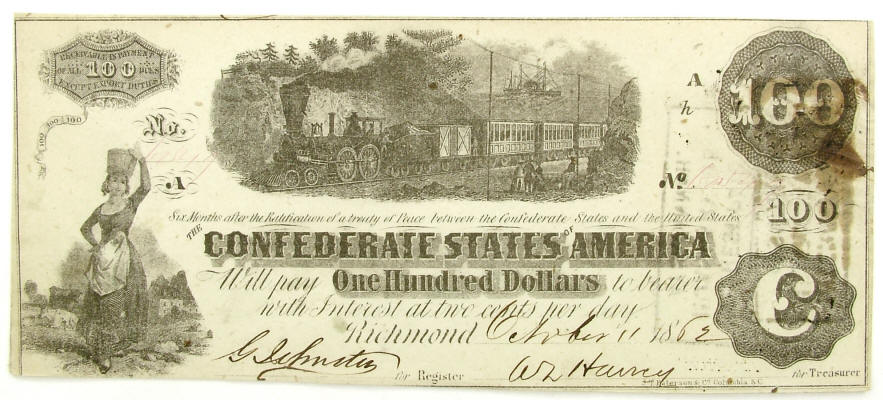 RECEIVABLE IN PAYMENT
OF ALL 100 DUES
EXCEPT EXPORT DUTIES
100 100 100
No.
A
A
h
100
No
100
Six Months after the Ratification of a treaty of Peace between the Confederate States and the United States
THE CONFEDERATE STATES OF AMERICA
Will pay One Hundred Dollars to bearer
with Interest at two cents per day
Richmond October 11 1862
for Register
for Treasurer
& Co. Columbia, S.C.